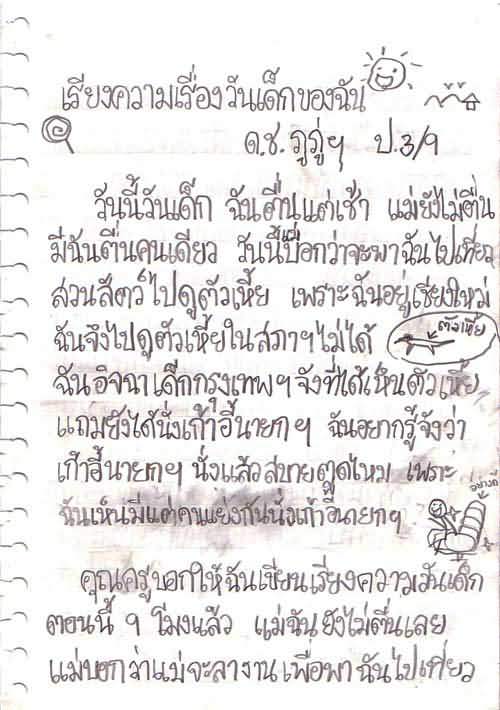 เรียงความเรื่องวันเด็กของฉัน
ด.ช. ภูภู่ฯ ป.3/9
วันนี้วันเด็ก ฉันตื่นแต่เช้า แม่ยังไม่ตื่น
มีฉันตื่นคนเดียว วันนี้ บอกว่าจะพาฉันไปเที่ยว
สวนสัตว์ไปดูตัวเหี้ย เพราะฉันอยู่เชียงใหม่
ฉันจึงไปดูตัวเหี้ยในสภาฯไม่ได้
ตัวเหี้ย
ฉันอิจฉาเด็กกรุงเทพฯจังที่ได้เห็นตัวเหี้ย
แถมยังได้นั่งเก้าอี้นายกฯ ฉันอยากรู้จังว่า
เก้าอี้นายกฯ นั่งแล้วสบายตูดไหม เพราะ
ฉันเห็นมีแต่คนแย่งกันนั่งเก้าอี้นายกฯ
คุณครูบอกให้ฉันเขียนเรียงความวันเด็ก
ตอนนี้ 9 โมงแล้ว แม่ฉันยังไม่ตื่นเลย
แม่บอกว่าแม่จะลางานเพื่อพาฉันไปเที่ยว